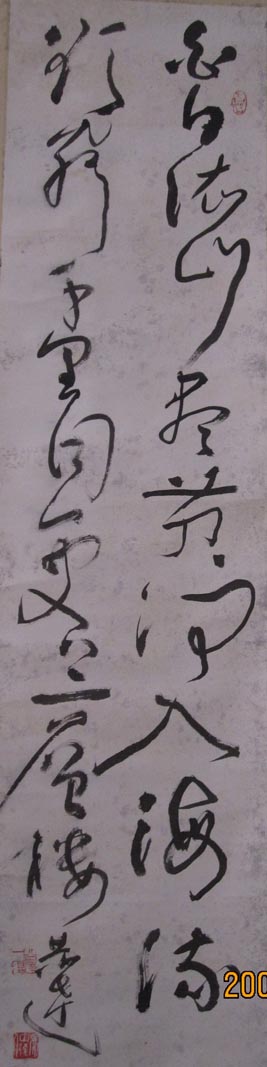 白日依山盡黄河入海流
欲窮千里目更上一層樓
200